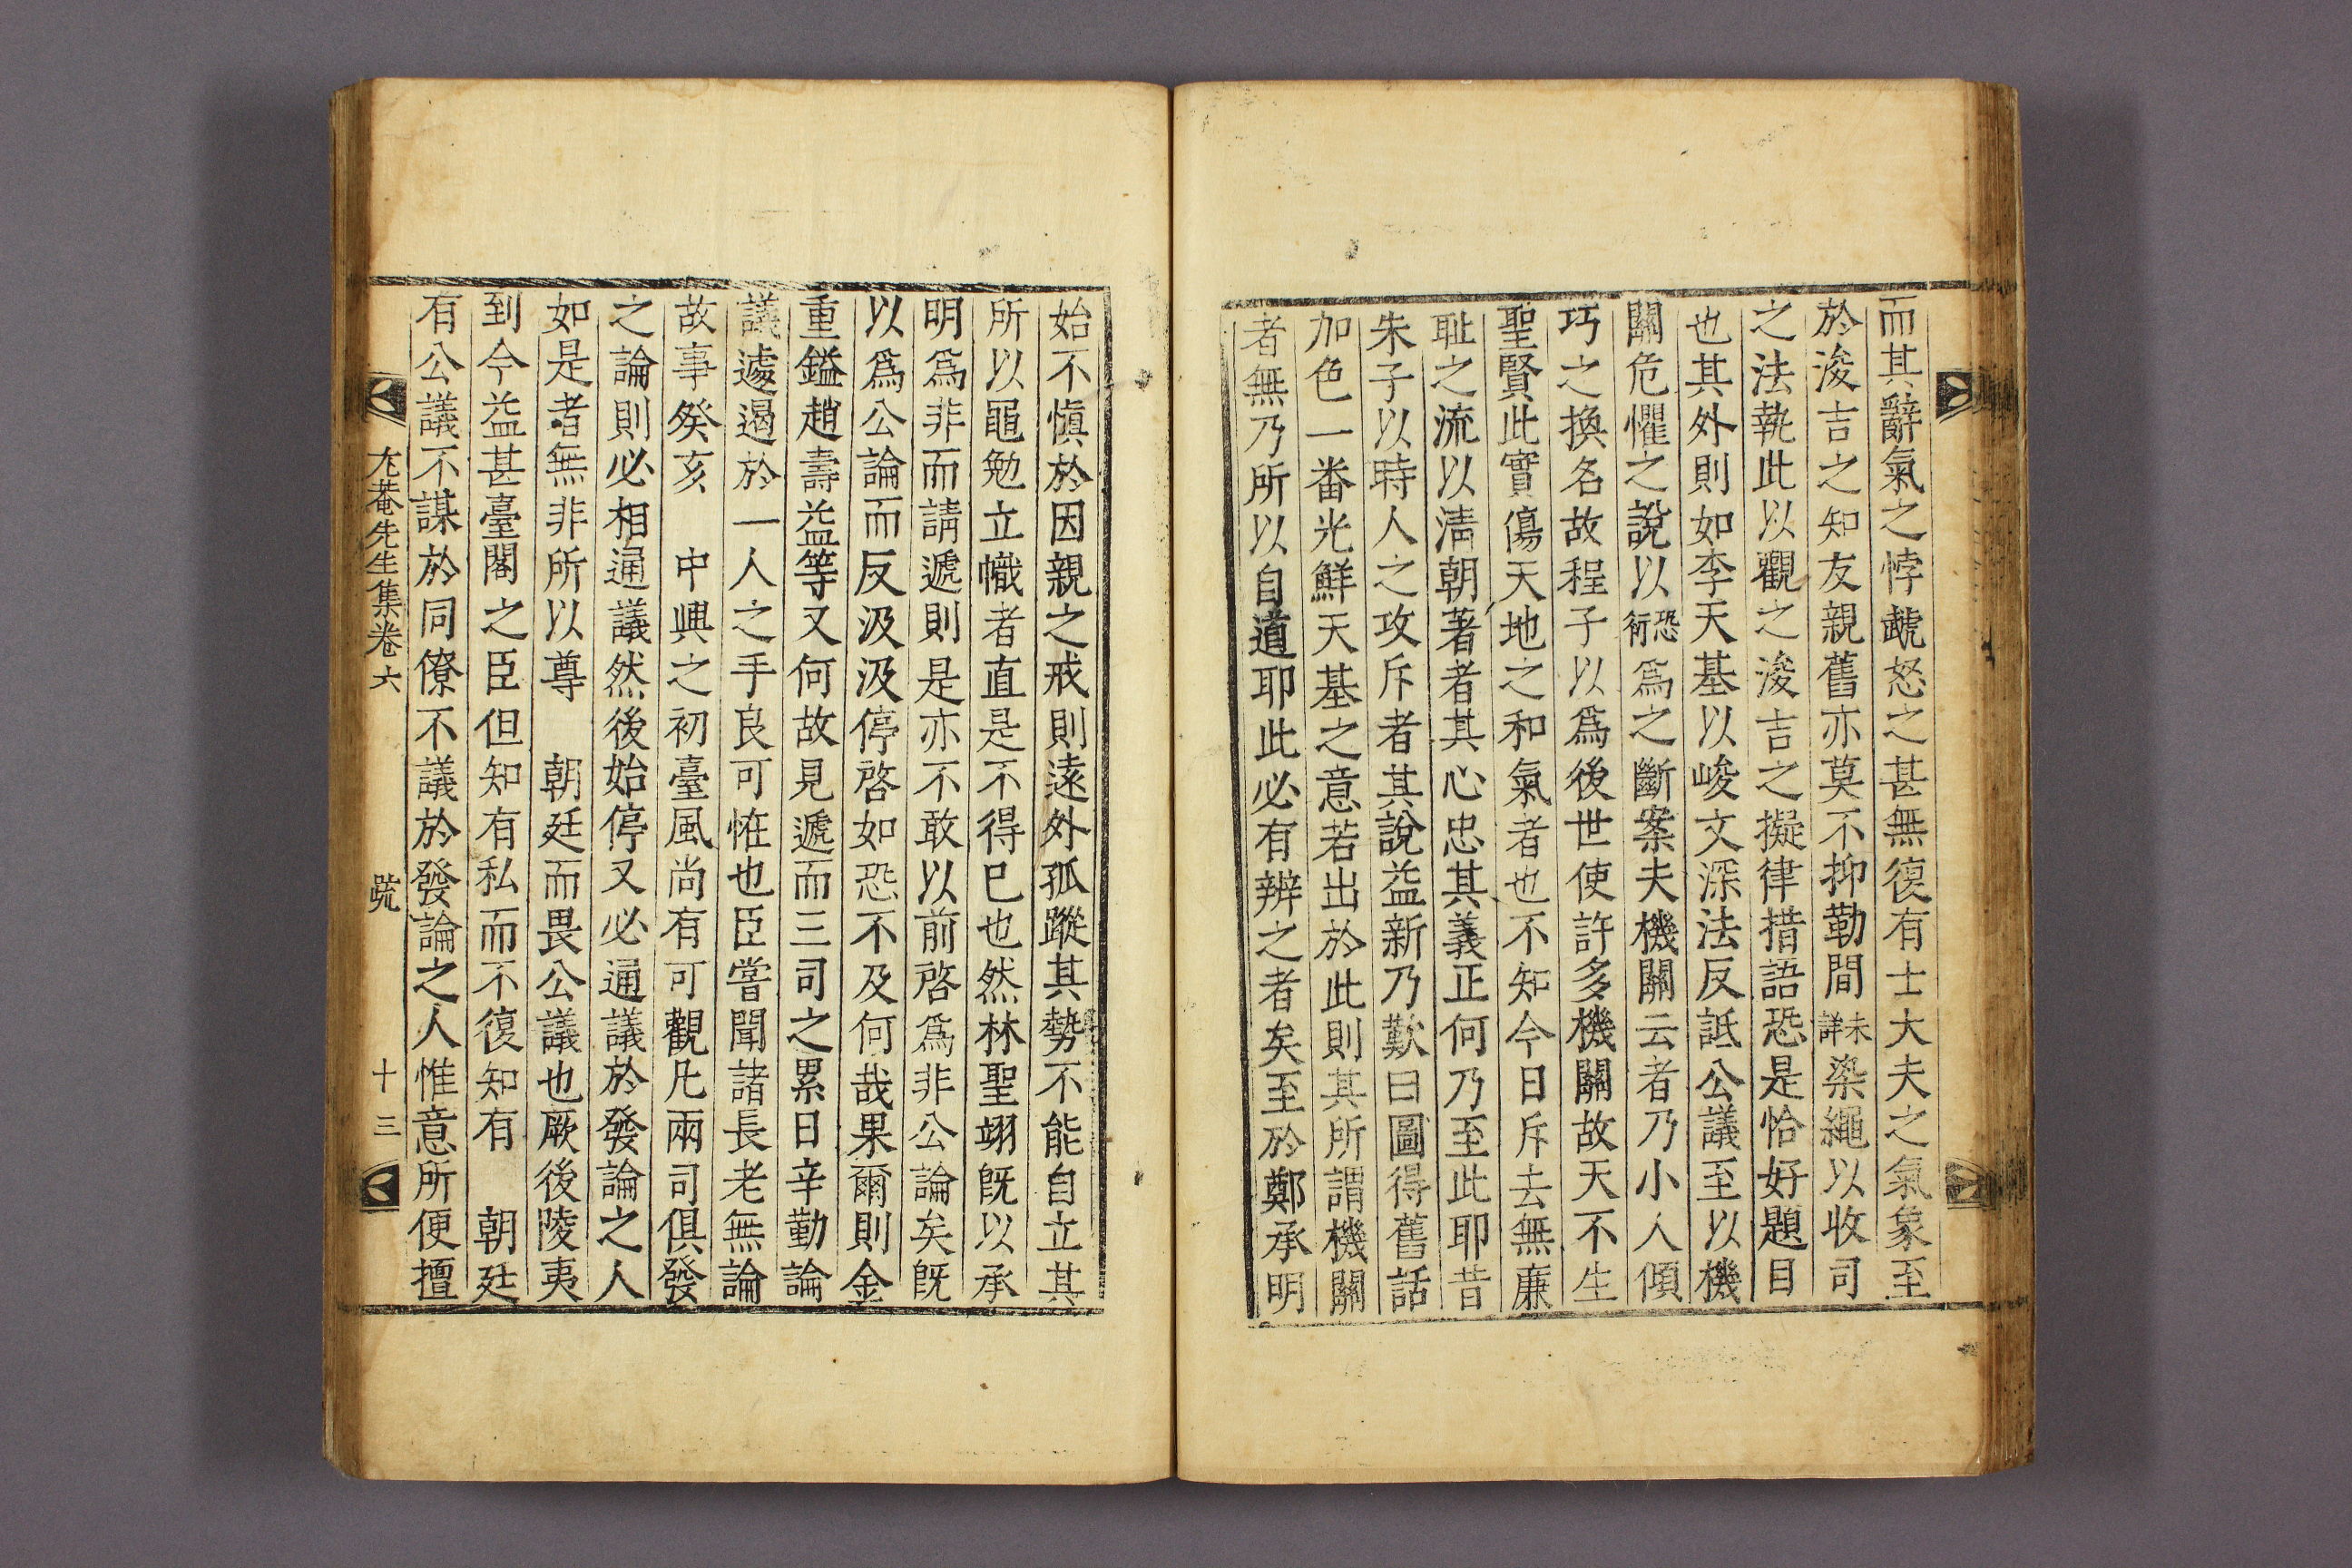 而其辭氣之悖虣怒之甚無復有士大夫之氣象至
於浚吉之知友親舊亦莫不抑勒間未詳染繩以收司
之法執此以觀之浚吉之擬律措語恐是恰好題目
也其外則如李天基以峻文深法反詆公議至以機
關危懼之說以恐衍爲之斷案夫機關云者乃小人傾
巧之換名故程子以爲後世使許多機關故天不生
聖賢此實傷天地之和氣者也不知今日斥去無廉
耻之流以淸朝著者其心忠其義正何乃至此耶昔
朱子以時人之攻斥者其說益新乃歎曰圖得舊話
加色一番光鮮天基之意若出於此則其所謂機關
者無乃所以自道耶此必有辨之者矣至於鄭承明
始不愼於因親之戒則遠外孤蹤其勢不能自立其
所以黽勉立幟者直是不得已也然林聖翊旣以承
明爲非而請遞則是亦不敢以前啓爲非公論矣旣
以爲公論而反汲汲停啓如恐不及何哉果爾則金
重鎰趙壽益等又何故見遞而三司之累日辛勤論
議遽遏於一人之手良可恠也臣嘗聞諸長老無論
故事癸亥　中興之初臺風尙有可觀凡兩司俱發
之論則必相通議然後始停又必通議於發論之人
如是者無非所以尊　朝廷而畏公議也厥後陵夷
到今益甚臺閣之臣但知有私而不復知有　朝廷
有公議不謀於同僚不議於發論之人惟意所便擅
尤菴先生集卷六　䟽　十三